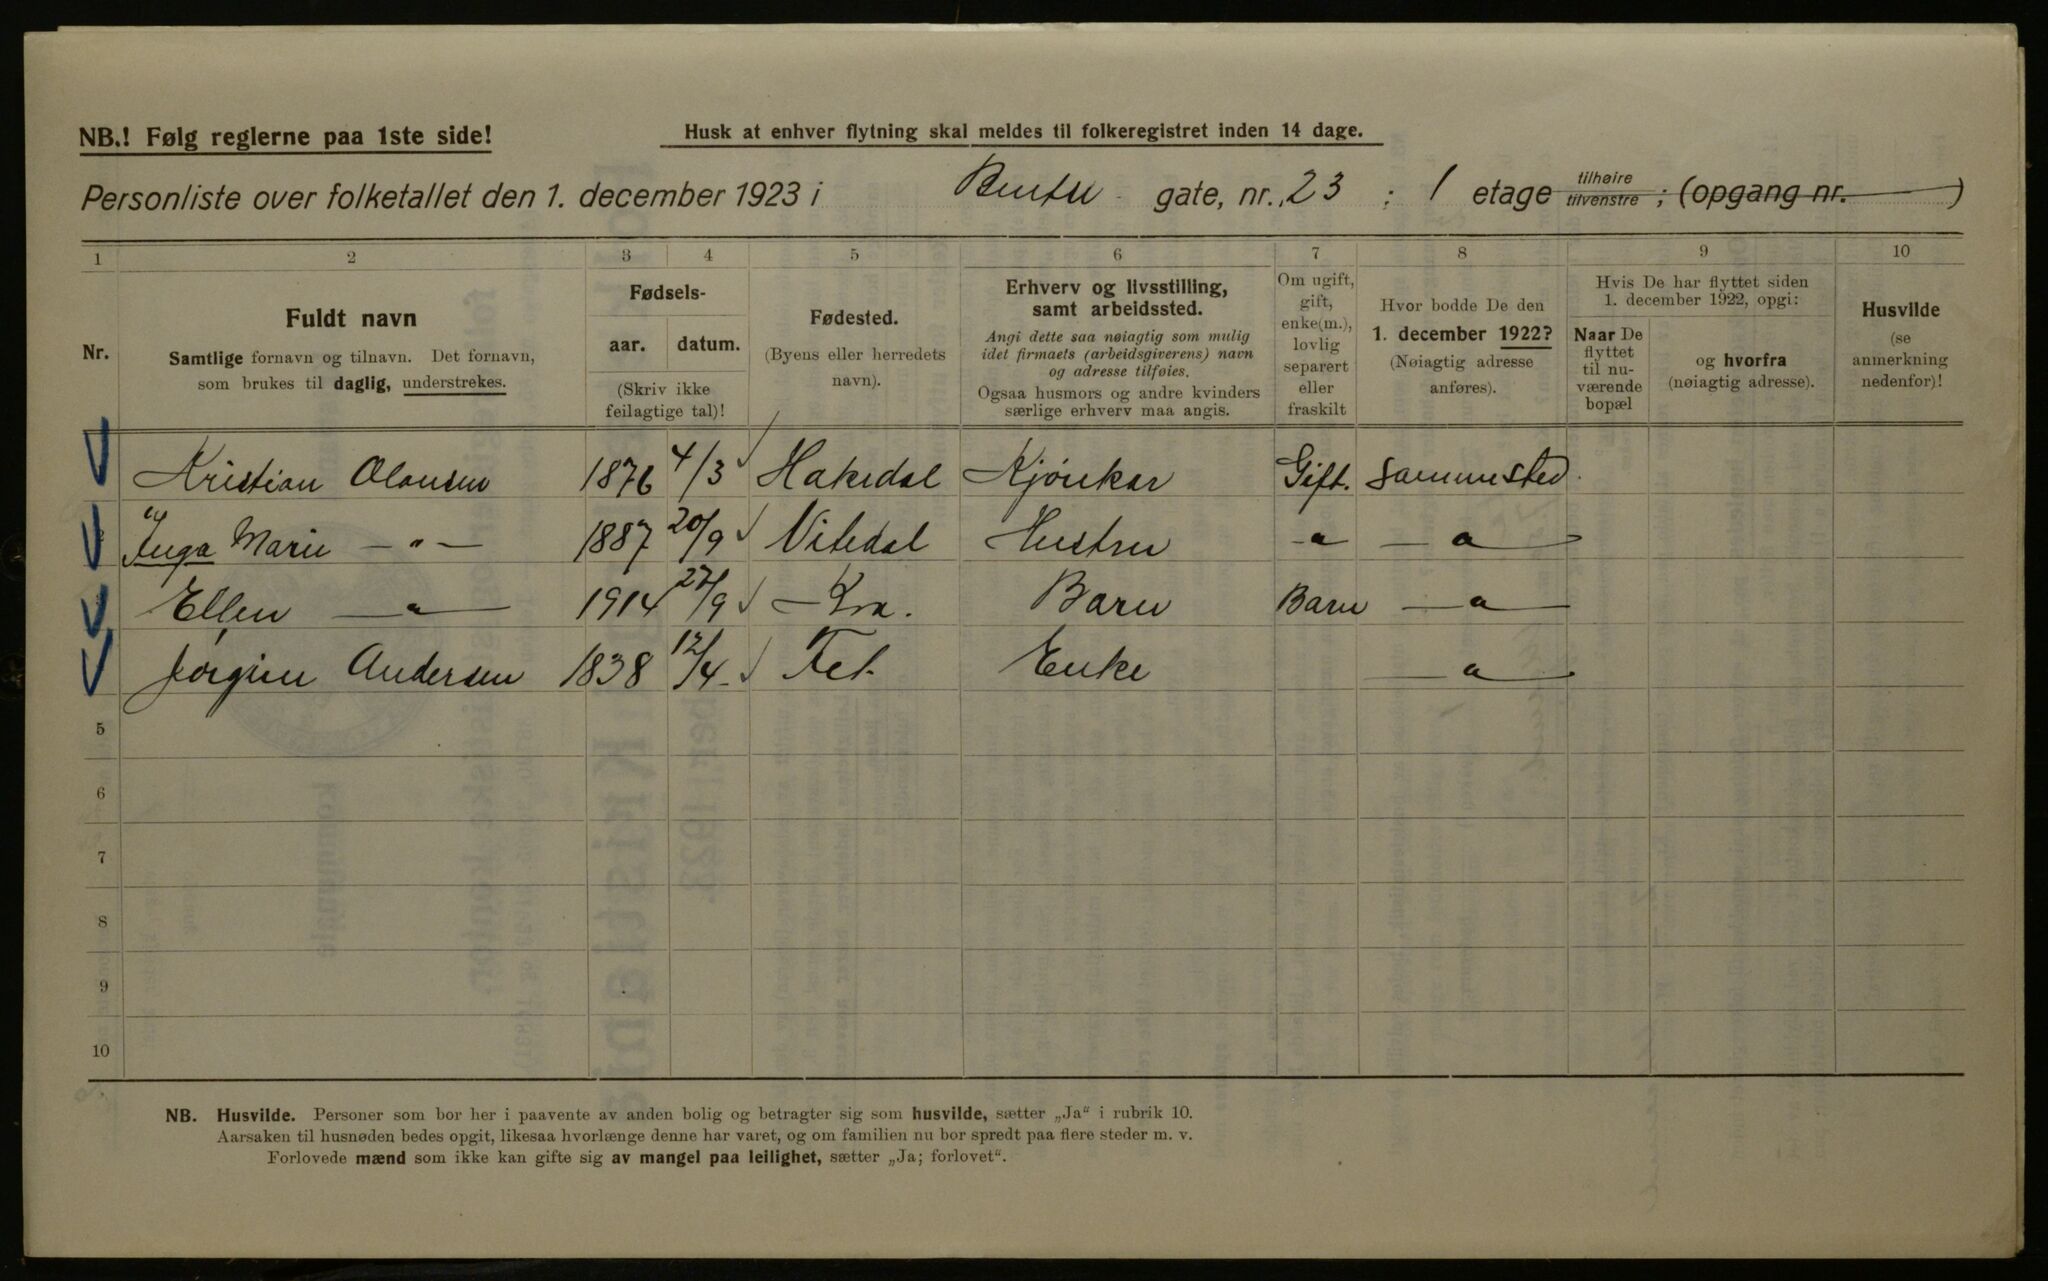 NB.! Følg reglerne paa 1ste side!
Husk at enhver flytning skal meldes til folkeregistret inden 14 dage.
Personliste over folketallet den 1. december 1923 i Bentse gate, nr. 23 ; 1 etage tilhøire tilvenstre ; (opgang nr. )
1 2 3 4 5 6 7 8 9 10
Nr.
Fuldt navn
Samtlige fornavn og tilnavn. Det fornavn,
som brukes til daglig, understrekes.
Fødsels-
aar. datum.
(Skriv ikke
feilagtige tal)!
Fødested.
(Byens eller herredets
navn).
Erhverv og livsstilling,
samt arbeidssted.
Angi dette saa nøiagtig som mulig
idet firmaets (arbeidsgiverens) navn
og adresse tilføies.
Ogsaa husmors og andre kvinders
særlige erhverv maa angis.
Om ugift,
gift,
enke(m.),
lovlig
separert
eller
fraskilt
Hvor bodde De den
1. december 1922?
(Nøiagtig adresse
anføres).
Hvis De har flyttet siden
1. december 1922, opgi:
Naar De
flyttet
til nu-
værende
bopæl
og hvorfra
(nøiagtig adresse).
Husvilde
(se
anmerkning
nedenfor)!
Kristian Olausen 1876 4/3 Hakedal Kjørekar Gift. Sammested.
Inga Marie —"— 1887 20/9 Nitedal Hustru —"— —"—
Ellen —"— 1914 27/9 Kra. Barn Barn —"—
Jørgine Andersen 1838 12/4 Fet. Enke —"—
5
6
7
8
9
10
NB. Husvilde. Personer som bor her i paavente av anden bolig og betragter sig som husvilde, sætter „Ja“ i rubrik 10.
Aarsaken til husnøden bedes opgit, likesaa hvorlænge denne har varet, og om familien nu bor spredt paa flere steder m. v.
Forlovede mænd som ikke kan gifte sig av mangel paa leilighet, sætter „Ja; forlovet“.